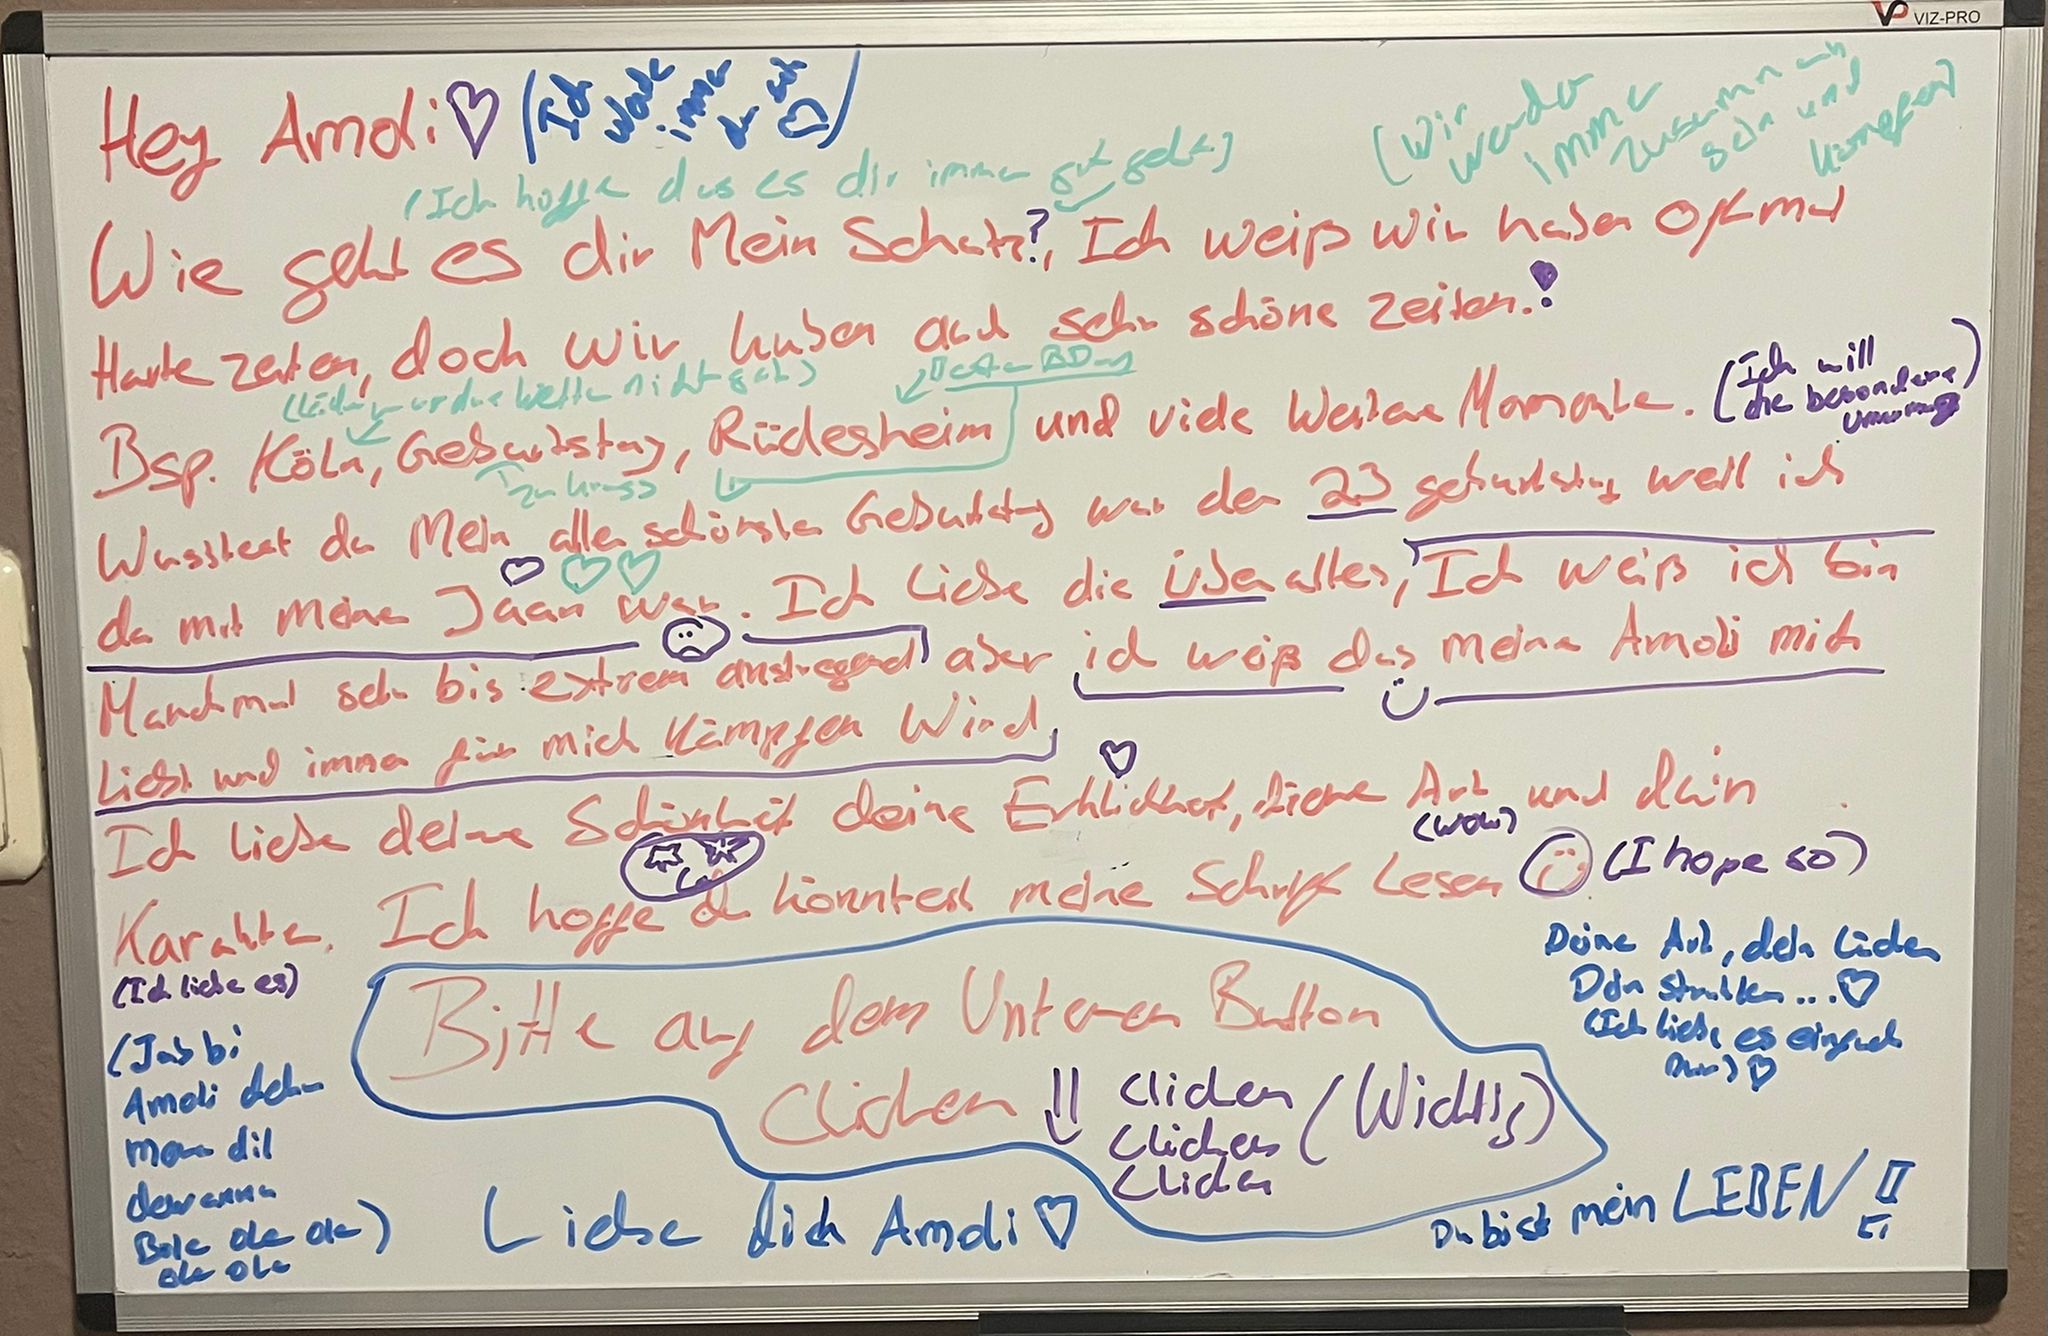 VIZ-PRO
Hey Amoli (Ich werde immer da sein)
(Wir werden immer zusammen sein und kämpfen)
(Ich hoffe das es dir immer gut geht)
Wie geht es dir Mein Schatz?, Ich weiß wir haben oft mal
Harte zeiten, doch wir haben auch sehr schöne zeiten.!
(Leider war das Wetter nicht gut)
Bsp. Köln, Geburtstag, Rüdesheim und viele weitere Momente. (Ich will die besondere
Zu krass
Wusstest du Mein aller schönster Geburtstag war der 23 geburtstag weil ich
da mit meine Jaan war. Ich Liebe die über alles, Ich weiß ich bin
Manchmal sehr bis extrem anstregend aber ich weiß das meine Amoli mich
Liebt und immer für mich kämpfen Wird
Ich liebe deine Schönheit deine Erhlichkeit, deine Art und dein
(wow)
Karakter. Ich hoffe du könntest meine Schrift Lesen (I hope so)
(Ich liebe es)
Deine Art, dein Lächen
Dein strahlen...
(Ich liebe es einfach
nur)
Bitte auf dem Unteren Button
Clicken !! Clicken (Wichtig)
Clicken
Clicken
(Jab bi
Amoli dekhu
mera dil
dewanna
Bole ole ole)
ole ole
(Liebe dich Amoli
Du bist mein LEBEN!!